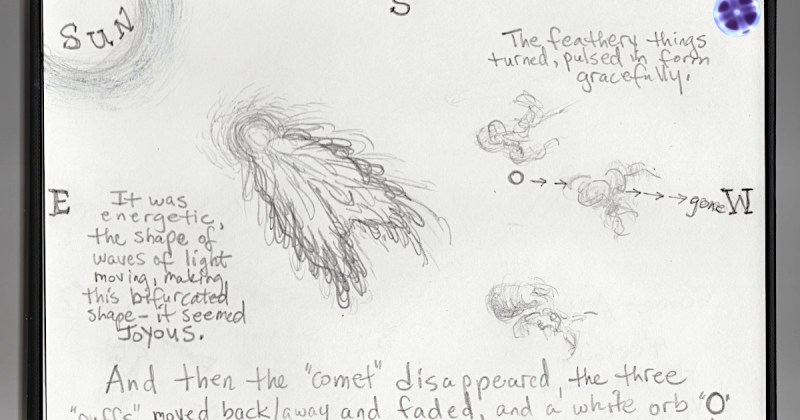 S
SUN
The feathery things
turned, pulsed in form
gracefully.
E
It was
energetic,
the shape of
waves of light
moving, making
this bifurcated
shape - it seemed
JOYOUS.
O → → → → → gone W
And then the "comet" disappeared, the three
"puffs" moved back/away and faded, and a white orb "O"